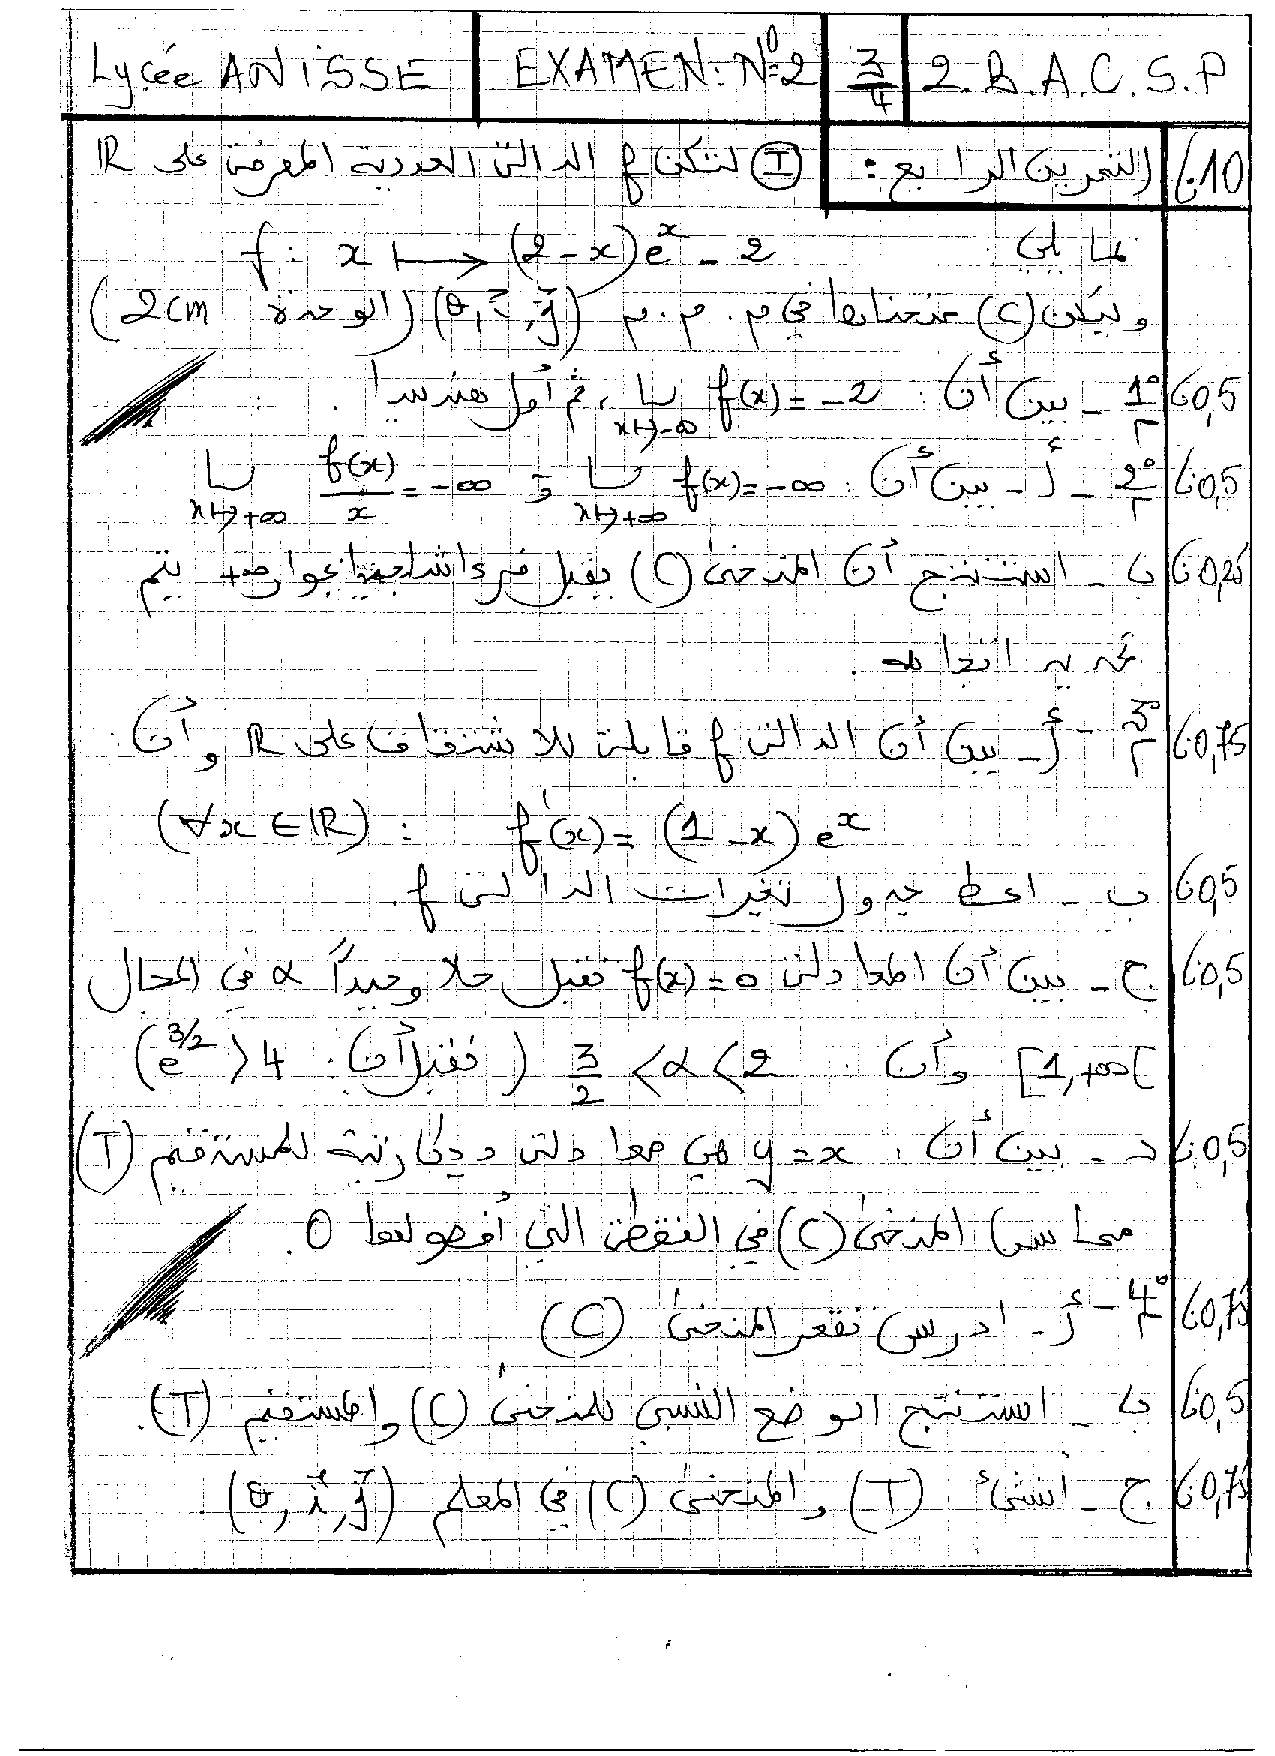 Lycée ANISSE EXAMEN: N°2 3/4 2.B.A.C.S.P
10ن التمرين الرابع: (I) لتكن f الدالة العددية المعرفة على IR
بما يلي f: x ⟼ (2-x)e^x - 2
وليكن (C) منحناها في م.م.م (O, i, j) (الوحدة 2cm)
0,5ن 1° - بين أن: lim f(x) = -2 x→-∞ ، ثم أول هندسيا.
0,5ن 2° - أ - بين أن: lim f(x) = -∞ x→+∞ و lim f(x)/x = -∞ x→+∞
0,25ن ب - استنتج أن المنحنى (C) يقبل فرعا شلجميا بجوار +∞ يتم
تحديد اتجاهه.
0,75ن 3° - أ - بين أن الدالة f قابلة للاشتقاق على IR وأن
(∀x ∈ IR) : f'(x) = (1-x) e^x
0,5ن ب - اعط جدول تغيرات الدالة f.
0,5ن ج - بين أن المعادلة f(x)=0 تقبل حلا وحيداً α في المجال
[1,+∞[ وأن: 3/2 < α < 2 (نقبل أن: 4 < e^(3/2))
0,5ن د - بين أن: y=x هي معادلة ديكارتية للمستقيم (T)
مماس المنحنى (C) في النقطة التي أفصولها 0.
0,75ن 4° - أ - ادرس تقعر المنحنى (C)
0,5ن ب - استنتج الوضع النسبي للمنحنى (C) والمستقيم (T).
0,75ن ج - انشئ (T) والمنحنى (C) في المعلم (O, i, j).